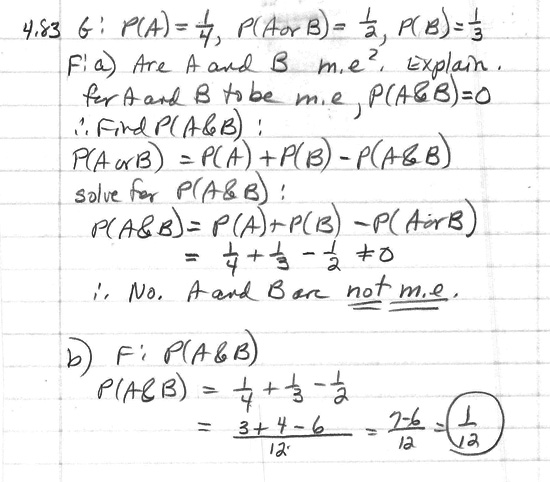 4.83 G: P(A) = 1/4, P(A or B) = 1/2, P(B) = 1/3
F: a) Are A and B m.e?. Explain.
for A and B to be m.e, P(A&B)=0
∴ Find P(A&B):
P(A or B) = P(A) + P(B) - P(A&B)
solve for P(A&B):
P(A&B) = P(A) + P(B) - P(A or B)
= 1/4 + 1/3 - 1/2 ≠ 0
∴ No. A and B are not m.e.
b) F: P(A&B)
P(A&B) = 1/4 + 1/3 - 1/2
= (3+4-6)/12 = (7-6)/12 = 1/12